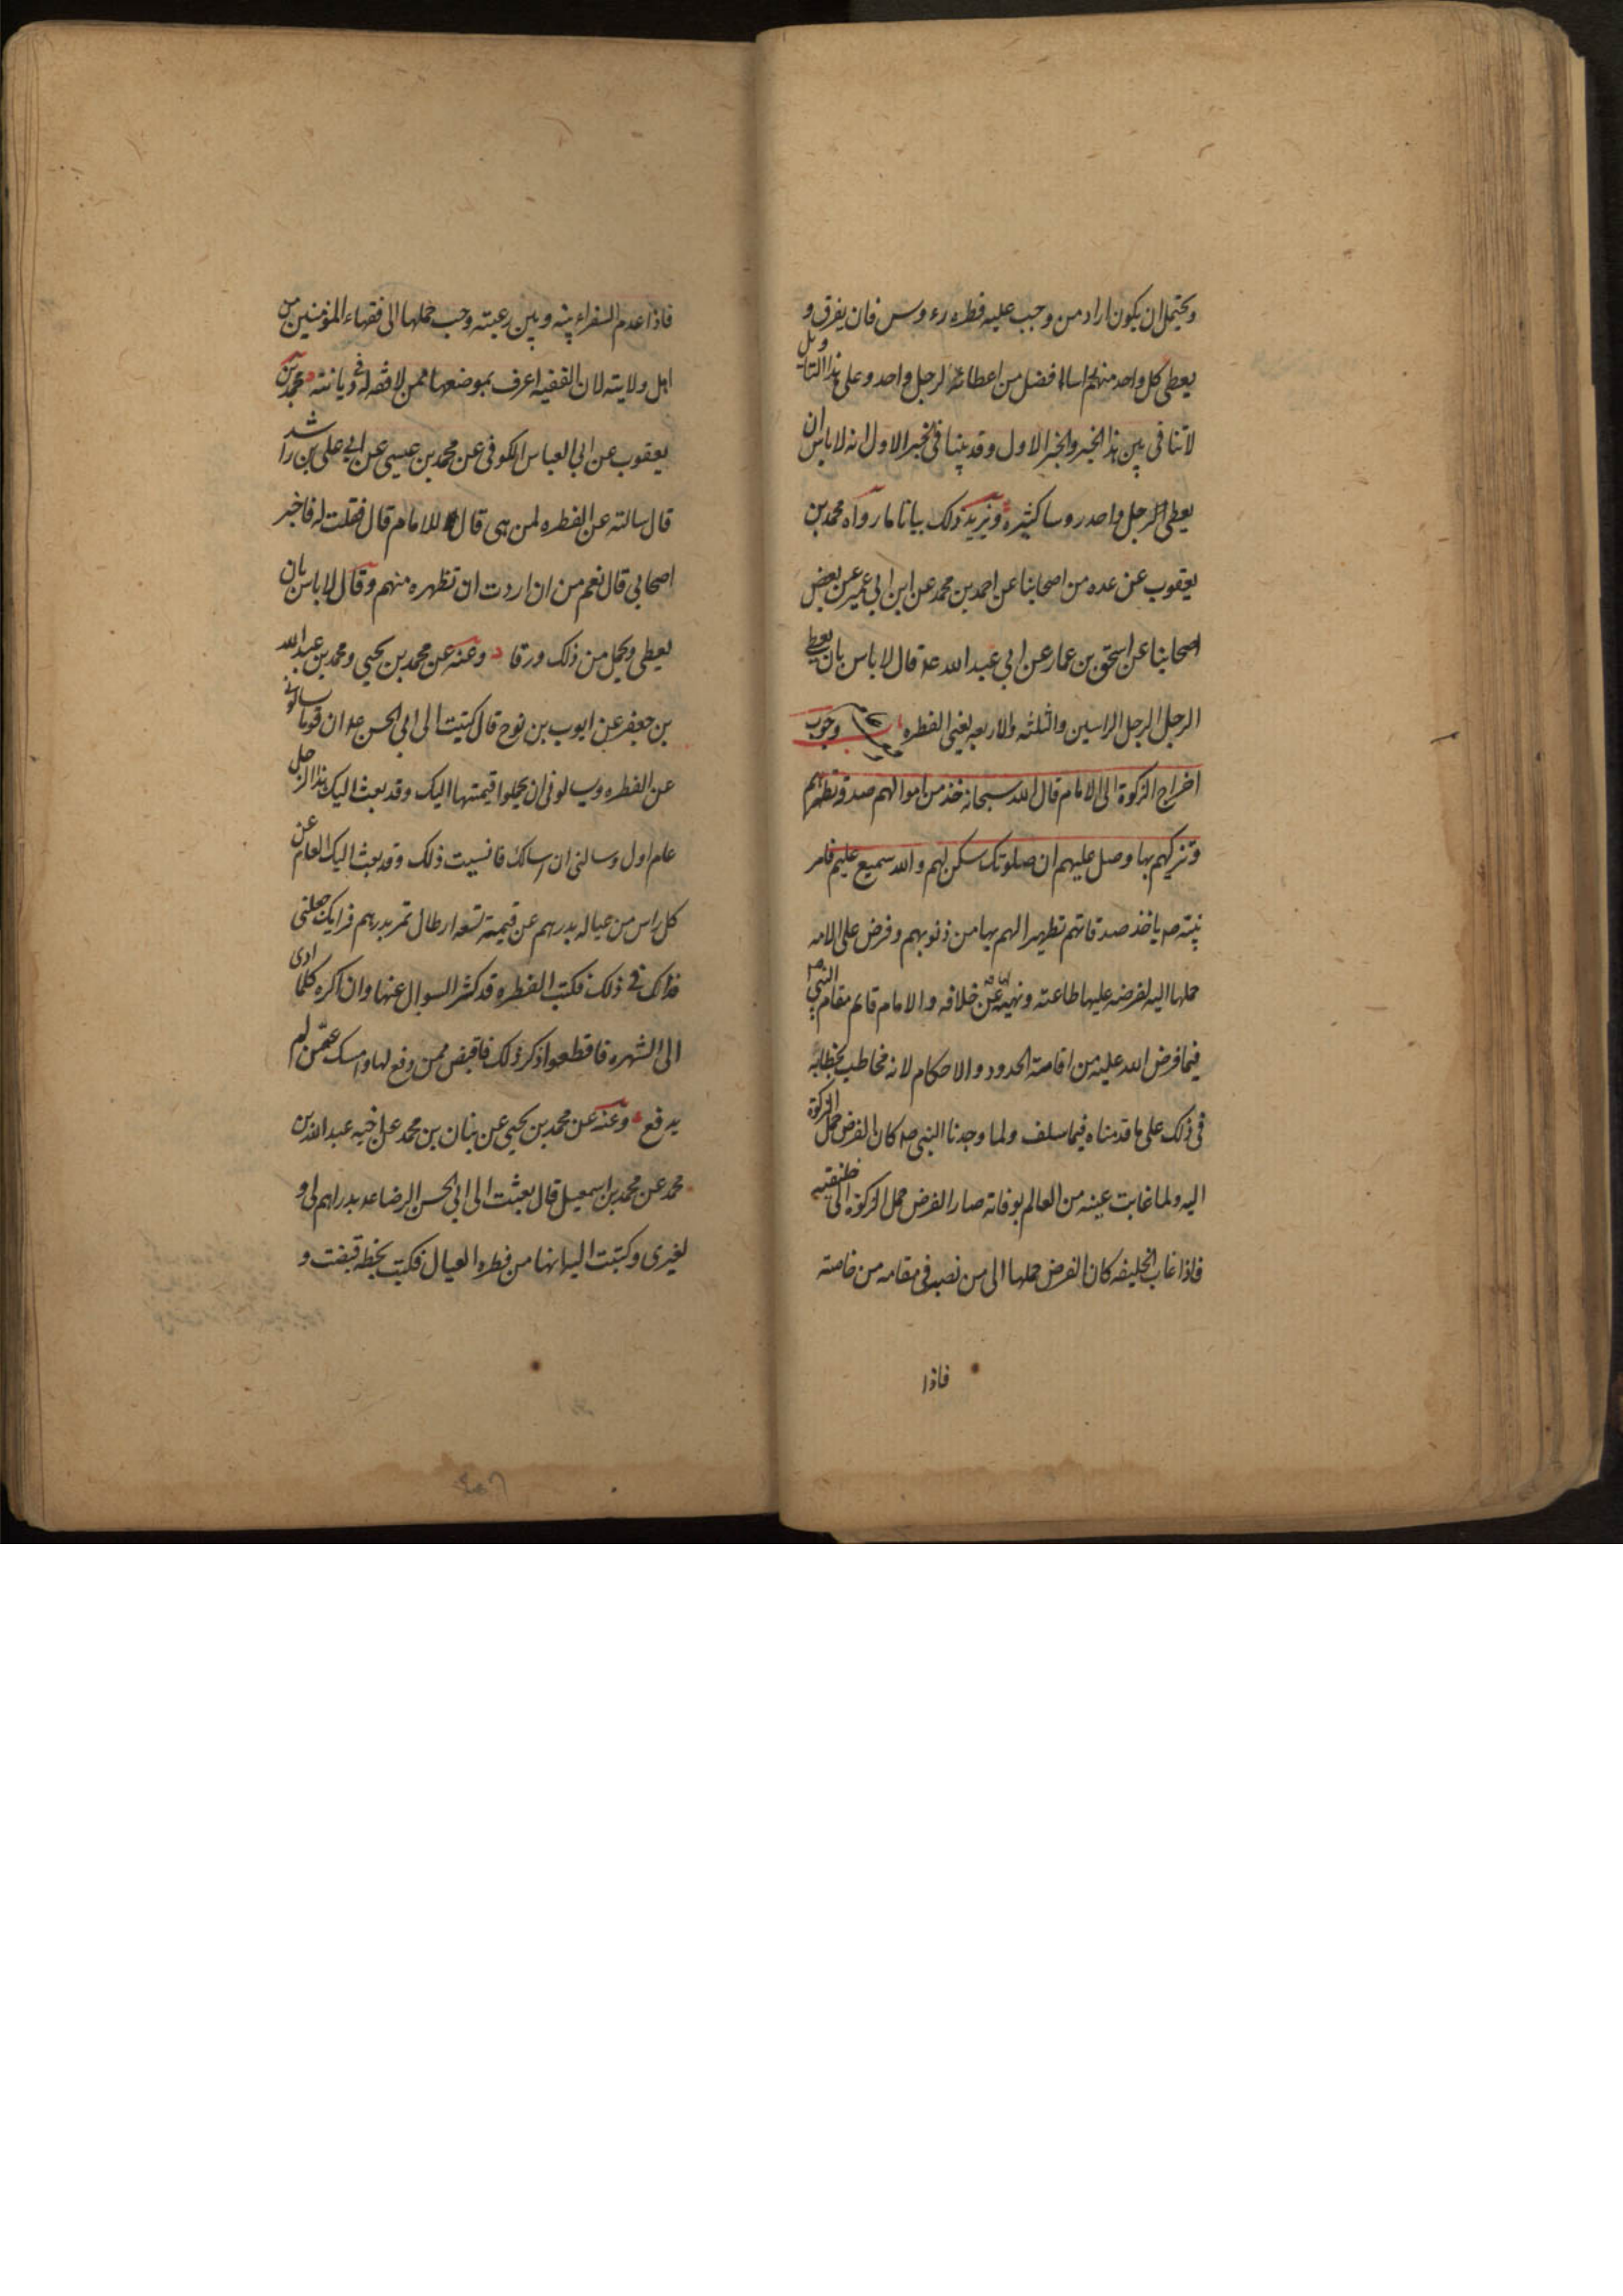 ويحتمل ان يكون اراد من وجب عليه فطره رءوس فان يفرق و
يعطي كل واحد منهم راسا افضل من اعطائه لرجل واحد وعلى هذا التاويل
لا تنافى بين هذا الخبر والخبر الاول وقد بينا فى الخبر الاول انه لا باس ان
يعطي الرجل واحد روسا كثيرة ويزيد ذلك بيانا ما رواه محمد بن
يعقوب عن عده من اصحابنا عن احمد بن محمد عن ابن ابي عمير عن بعض
اصحابنا عن اسحق بن عمار عن ابي عبد الله ع قال لا باس بان يعطي
الرجل الرجل الراسين والثلثه والاربعه يعني الفطره وجوب
اخراج الزكوة الى الامام قال الله سبحانه خذ من اموالهم صدقة تطهرهم
وتزكيهم بها وصل عليهم ان صلوتك سكن لهم والله سميع عليم فامر
نبيه ص ياخذ صدقاتهم تطهيرا لهم بها من ذنوبهم وفرض على الامه
حملها اليه لفرضه عليها طاعته ونهيه لها عن خلافه والامام قايم مقام النبي ص
فيما فرض الله عليه من اقامة الحدود والاحكام لانه مخاطب بخطابه
فى ذلك على ما قدمناه فيما سلف ولما وجدنا النبي ص كان الفرض حمل الزكوة
اليه ولما غابت عينه من العالم بوفاته صار الفرض حمل الزكوة الى خليفته
فاذا غاب الخليفه كان الفرض حملها الى من نصبه فى مقامه من خاصته
فاذا
فاذا عدم السفراء بينه وبين رعيته وجب حملها الى فقهاء المؤمنين من
اهل ولايته لان الفقيه اعرف بموضعها ممن لا فقه له فى ديانته محمد بن
يعقوب عن ابي العباس الكوفى عن محمد بن عيسى عن ابي على بن راشد
قال سالته عن الفطره لمن هى قال للامام قال فقلت له فاخبر
اصحابي قال نعم من ان اردت ان تطهره منهم وقال لا باس بان
يعطي ويحمل من ذلك ورقا وعنه عن محمد بن يحيي ومحمد بن عبد الله
بن جعفر عن ايوب بن نوح قال كتبت الى ابي الحسن ع ان قوما سالونى
عن الفطره ويسالونى ان يحملوا قيمتها اليك وقد بعث اليك هذا الرجل
عام اول وسالنى ان اسالك فانسيت ذلك وقد بعث اليك العام عن
كل راس من عياله بدرهم عن قيمة تسعه ارطال تمر بدرهم فرايك جعلنى
فداك فى ذلك فكتب الفطره قد كثر السوال عنها وان اكره كلما ادى
الى الشهره فاقطعوا ذكر ذلك فاقبض ممن دفع لها وامسك عمن لم
يدفع وعنه عن محمد بن يحيي عن بنان بن محمد عن اخيه عبد الله بن
محمد عن محمد بن اسمعيل قال بعثت الى ابي الحسن الرضا ع بدراهم لى و
لغيرى وكتبت اليه انها من فطره العيال فكتب بخطه قبضت و